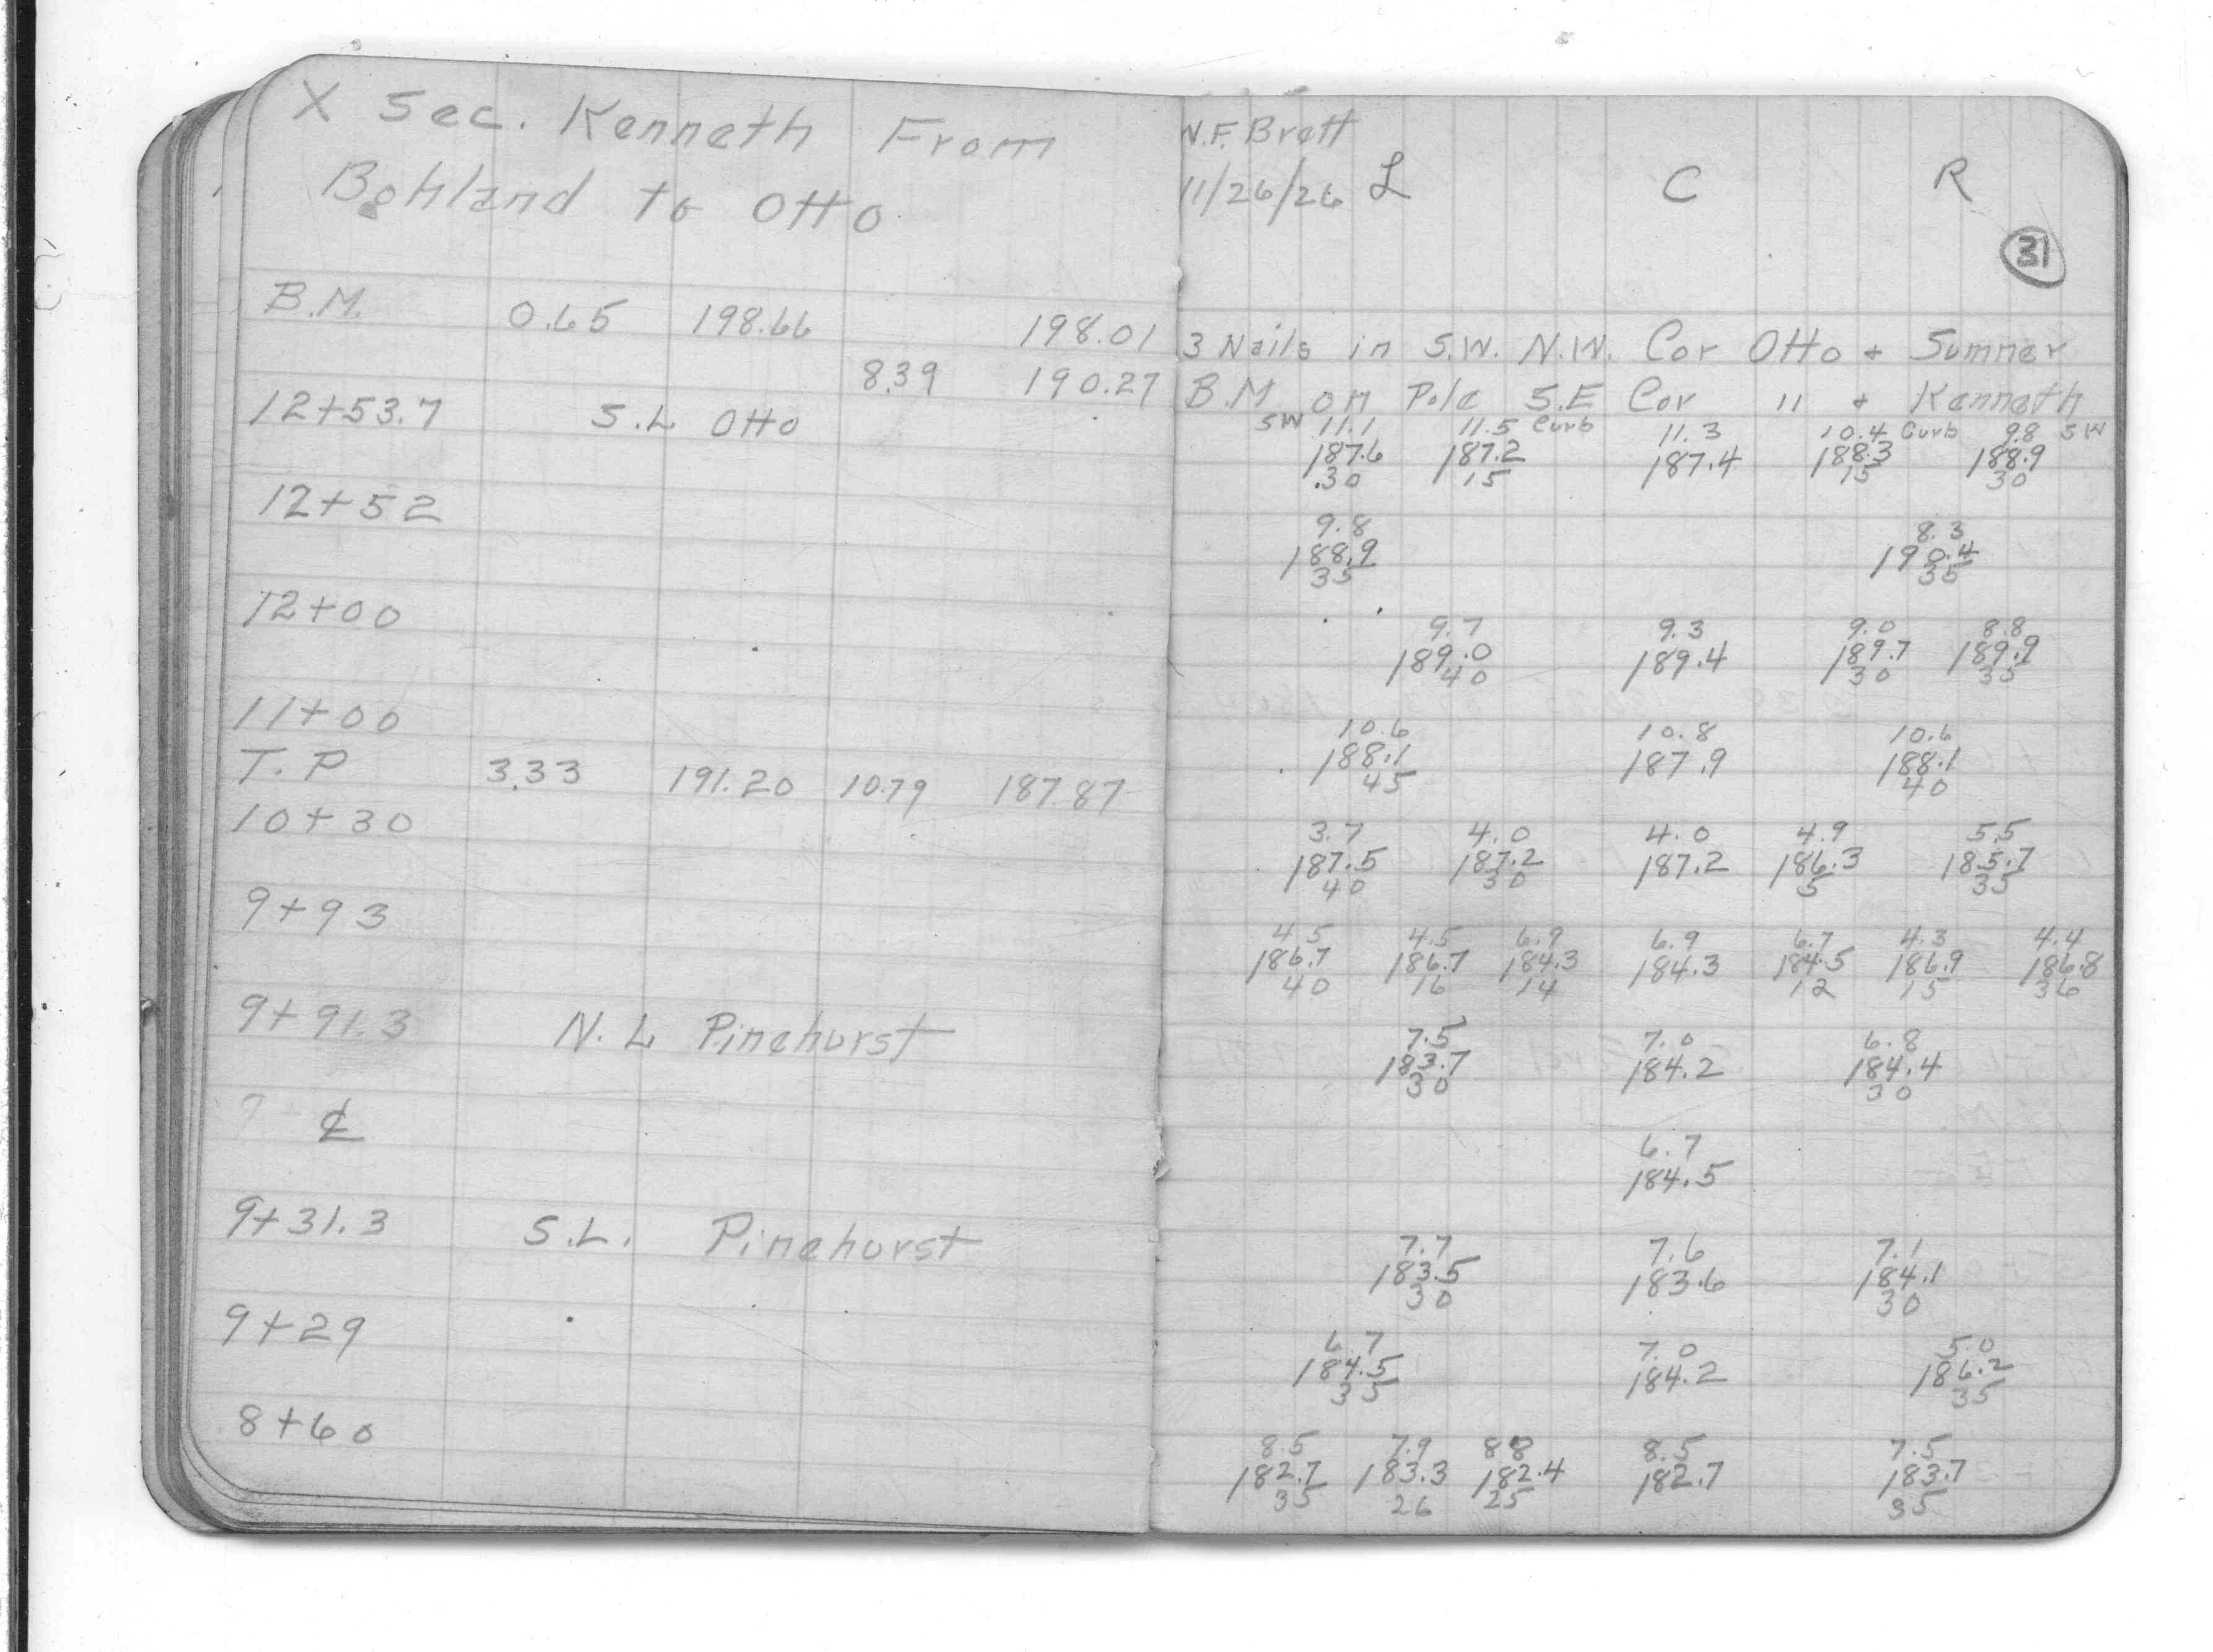 X Sec. Kenneth From
Bohland to Otto
B.M. 0.65 198.66 198.01
8.39 190.27
12+53.7 S.L Otto
12+52
12+00
11+00
T.P 3.33 191.20 10.79 187.87
10+30
9+93
9+91.3 N.L Pinehurst
℄
9+31.3 S.L. Pinehurst
9+29
8+60
W.F. Brett
11/26/26 L C R
31
3 Nails in S.W. N.W. Cor Otto + Sumner
B.M on Pole S.E Cor " + Kenneth
SW 11.1 11.5 Curb 11.3 10.4 Curb 9.8 SW
187.6 187.2 187.4 188.3 188.9
30 15 15 30
9.8 8.3
188.9 190.4
35 35
9.7 9.3 9.0 8.8
189.0 189.4 189.7 189.9
40 30 35
10.6 10.8 10.6
188.1 187.9 188.1
45 40
3.7 4.0 4.0 4.9 5.5
187.5 187.2 187.2 186.3 185.7
40 30 5 35
4.5 4.5 6.9 6.9 6.7 4.3 4.4
186.7 186.7 184.3 184.3 184.5 186.9 186.8
40 16 14 12 15 36
7.5 7.0 6.8
183.7 184.2 184.4
30 30
6.7
184.5
7.7 7.6 7.1
183.5 183.6 184.1
30 30
6.7 7.0 5.0
184.5 184.2 186.2
35 35
8.5 7.9 8.8 8.5 7.5
182.7 183.3 182.4 182.7 183.7
35 26 25 35